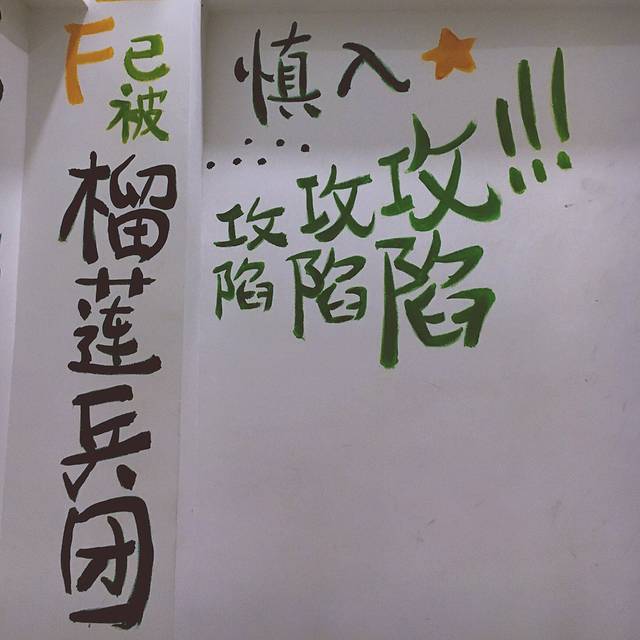 F已被榴莲兵团
慎入
......
攻陷攻陷攻陷!!!